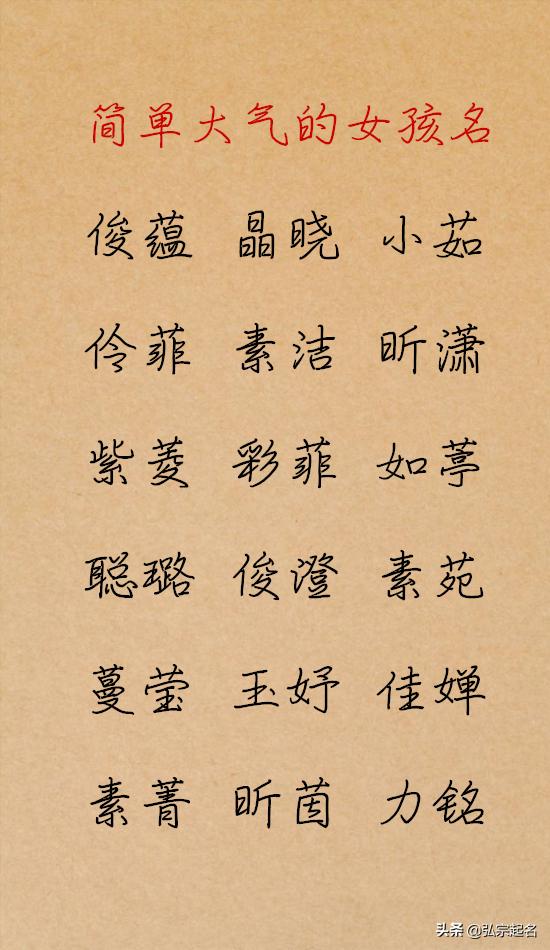 简单大气的女孩名
俊蕴 晶晓 小茹
伶菲 素洁 昕潇
紫菱 彩菲 如葶
聪璐 俊澄 素苑
蔓莹 玉妤 佳婵
素菁 昕茵 力铭
头条 @弘宗起名